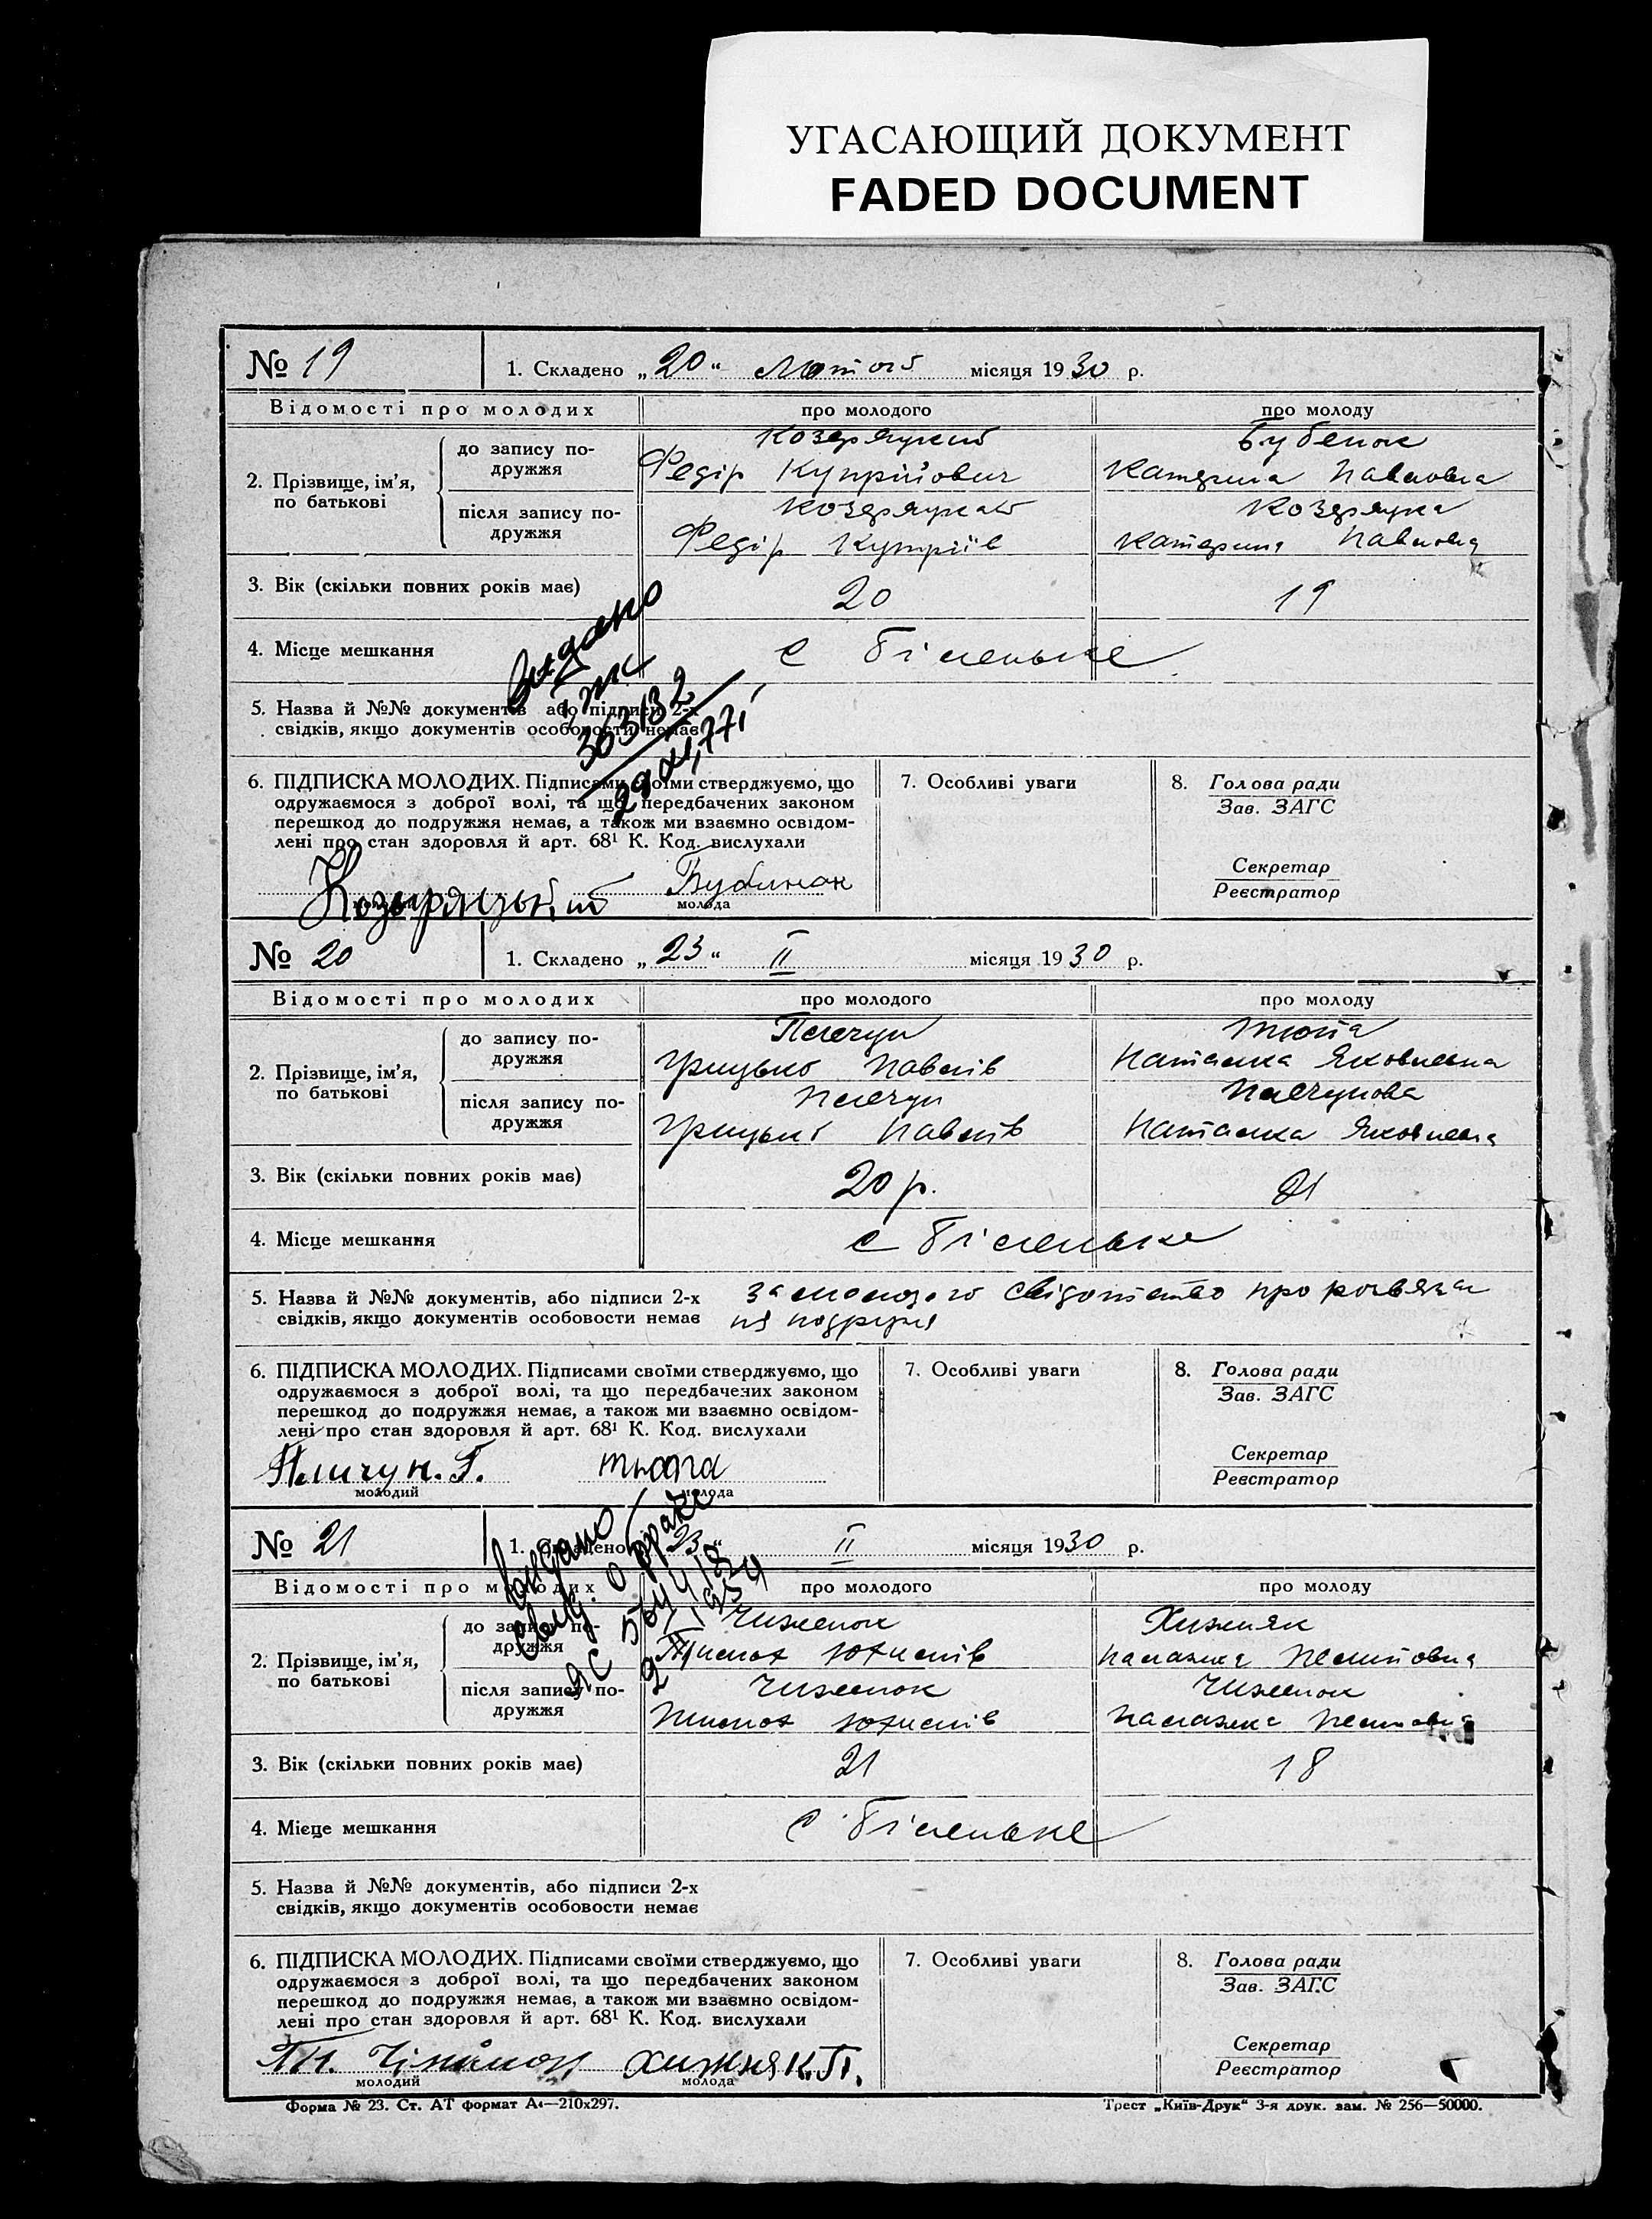 УГАСАЮЩИЙ ДОКУМЕНТ
FADED DOCUMENT
№ 19
1. Складено „20“ Лютого місяця 1930 р.
Відомості про молодих
про молодого
про молоду
2. Прізвище, ім'я, по батькові
до запису по-
дружжя
Бубенок
Федір Купрійович
Катерина Павловна
після запису по-
дружжя
Федір Купріїв
Катерина Павловна
3. Вік (скільки повних років має)
20
19
4. Місце мешкання
с Біленьке
5. Назва й №№ документів або підписи 2-х
свідків, якщо документів особовости немає
Видано
363132
6. ПІДПИСКА МОЛОДИХ. Підписами своїми стверджуємо, що
одружаємося з доброї волі, та що передбачених законом
перешкод до подружжя немає, а також ми взаємно освідом-
лені про стан здоровля й арт. 68¹ К. Код. вислухали
молода
7. Особливі уваги
8. Голова ради
Зав. ЗАГС
Секретар
Реєстратор
№ 20
1. Складено „23“ II місяця 1930 р.
Відомості про молодих
про молодого
про молоду
2. Прізвище, ім'я,
по батькові
до запису по-
дружжя
Грицько Павлів
Наталка Яковлевна
після запису по-
дружжя
Грицько Павлів
Наталка Яковлевна
3. Вік (скільки повних років має)
20 р.
21
4. Місце мешкання
с Біленьке
5. Назва й №№ документів, або підписи 2-х
свідків, якщо документів особовости немає
за молодого свідоцтво про розвяза
ня подружя
6. ПІДПИСКА МОЛОДИХ. Підписами своїми стверджуємо, що
одружаємося з доброї волі, та що передбачених законом
перешкод до подружжя немає, а також ми взаємно освідом-
лені про стан здоровля й арт. 68¹ К. Код. вислухали
молодий
молода
7. Особливі уваги
8. Голова ради
Зав. ЗАГС
Секретар
Реєстратор
№ 21
1. Складено „23“ II місяця 1930 р.
Видано
свид. о браке
Відомості про молодих
про молодого
про молоду
2. Прізвище, ім'я,
по батькові
до запису по-
дружжя
Чиженок
Хижняк
після запису по-
дружжя
Чиженок
Чиженок
3. Вік (скільки повних років має)
21
18
4. Місце мешкання
с Біленьке
5. Назва й №№ документів, або підписи 2-х
свідків, якщо документів особовости немає
6. ПІДПИСКА МОЛОДИХ. Підписами своїми стверджуємо, що
одружаємося з доброї волі, та що передбачених законом
перешкод до подружжя немає, а також ми взаємно освідом-
лені про стан здоровля й арт. 68¹ К. Код. вислухали
хижняк. П.
молодий
молода
7. Особливі уваги
8. Голова ради
Зав. ЗАГС
Секретар
Реєстратор
Форма № 23. Ст. АТ формат А4—210х297.
Трест „Київ-Друк“ 3-я друк. зам. № 256—50000.